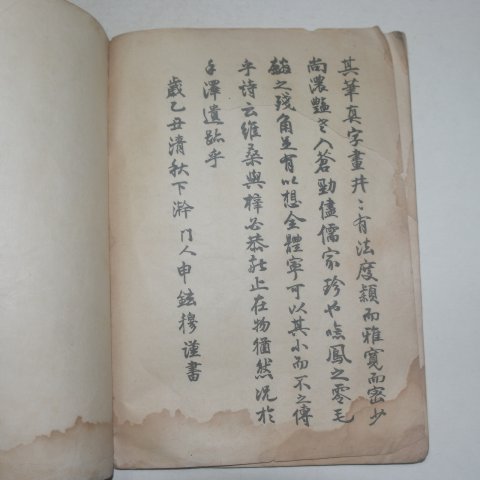 其筆真字畫井〻有法度頴而雅寬而密少
尚濃艶老入蒼勁儘儒家珍也噫鳳之零毛
麟之殘角足有以想全體寧可以其小而不之傳
乎詩云維桑與梓必恭敬止在物猶然况於
手澤遺跡乎
歲乙丑淸秋下澣 門人申鉉穆謹書